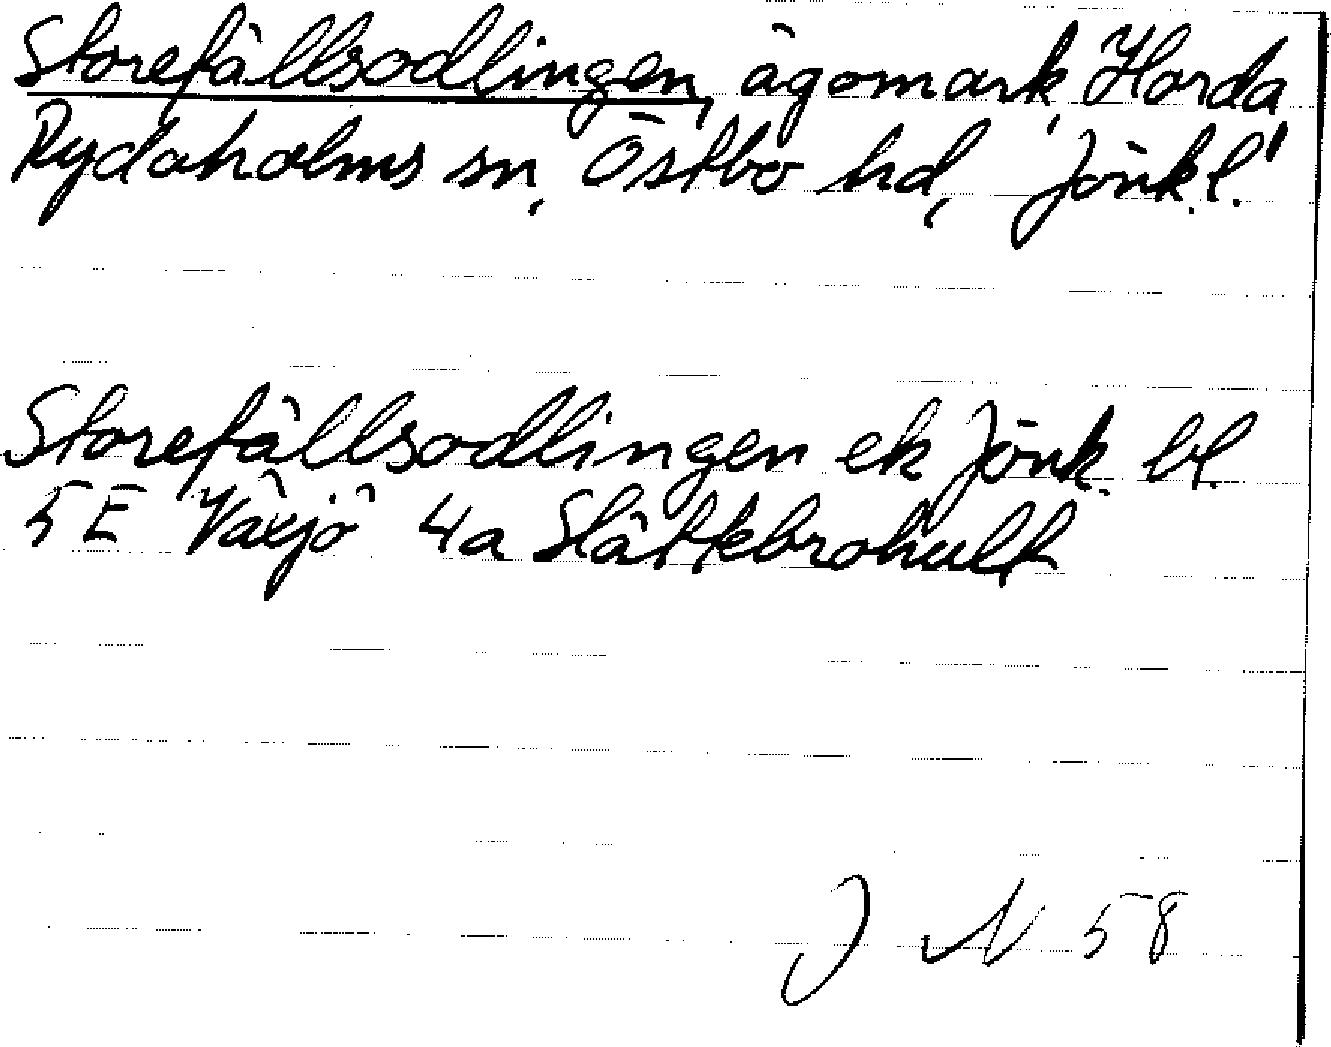 Storefällsodlingen, ägomark, Horda
Rydaholms sn, Östbo hd, Jönk.l.
Storefällsodlingen ek Jönk. bl.
5E Växjö 4a Slättebrohult
J N 58